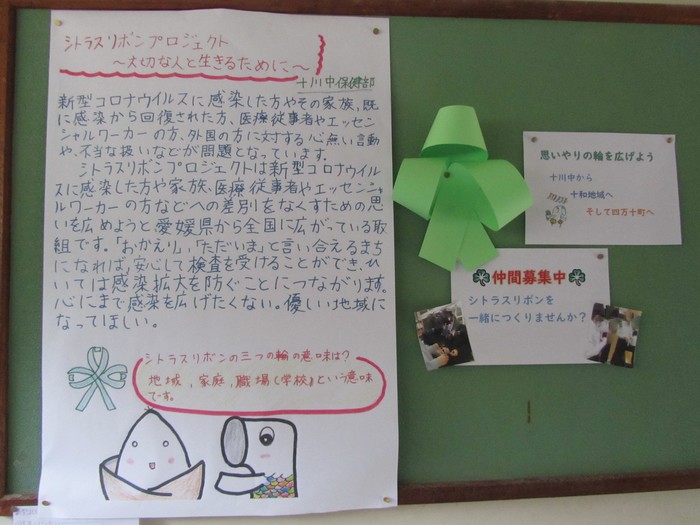 シトラスリボンプロジェクト
～大切な人と生きるために～
十川中保健部
新型コロナウイルスに感染した方やその家族、既
に感染から回復された方、医療従事者やエッセン
シャルワーカーの方、外国の方に対する心無い言動
や、不当な扱いなどが問題となっています。
シトラスリボンプロジェクトは新型コロナウイル
スに感染した方や家族、医療従事者やエッセンシャ
ルワーカーの方などへの差別をなくすための思
いを広めようと愛媛県から全国に広がっている取
組です。「おかえり」、「ただいま」と言い合えるまち
になれば、安心して検査を受けることができ、ひ
いては感染拡大を防ぐことにつながります。
心にまで感染を広げたくない。優しい地域に
なってほしい。
シトラスリボンの三つの輪の意味は?
地域、家庭、職場(学校)という意味
です。
思いやりの輪を広げよう
十川中から
十和地域へ
そして四万十町へ
仲間募集中
シトラスリボンを
一緒につくりませんか?